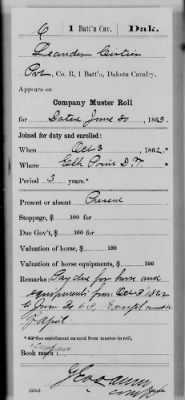 C 1 Batt'n Cav. Dak.
Leander
Pvt, Co. B, 1 Batt'n, Dakota Cavalry.
Appears on
Company Muster Roll
for Dated June 30, 1863.
Joined for duty and enrolled:
When Oct 3, 1862*
Where Elk Point D.T.
Period 3 years.*
Present or absent Present
Stoppage, $ 100 for
Due Gov't, $ 100 for
Valuation of horse, $ 100
Valuation of horse equipments, $ 100
Remarks: Pay due for horse and
equipments from Oct 3 1862
to June 30
* See enrollment on card from muster-in roll.
Book mark: